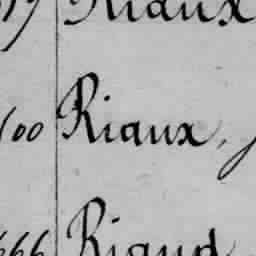 Riaux
600 Riaux,
666 Riaud